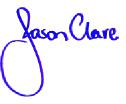 Jason Clare